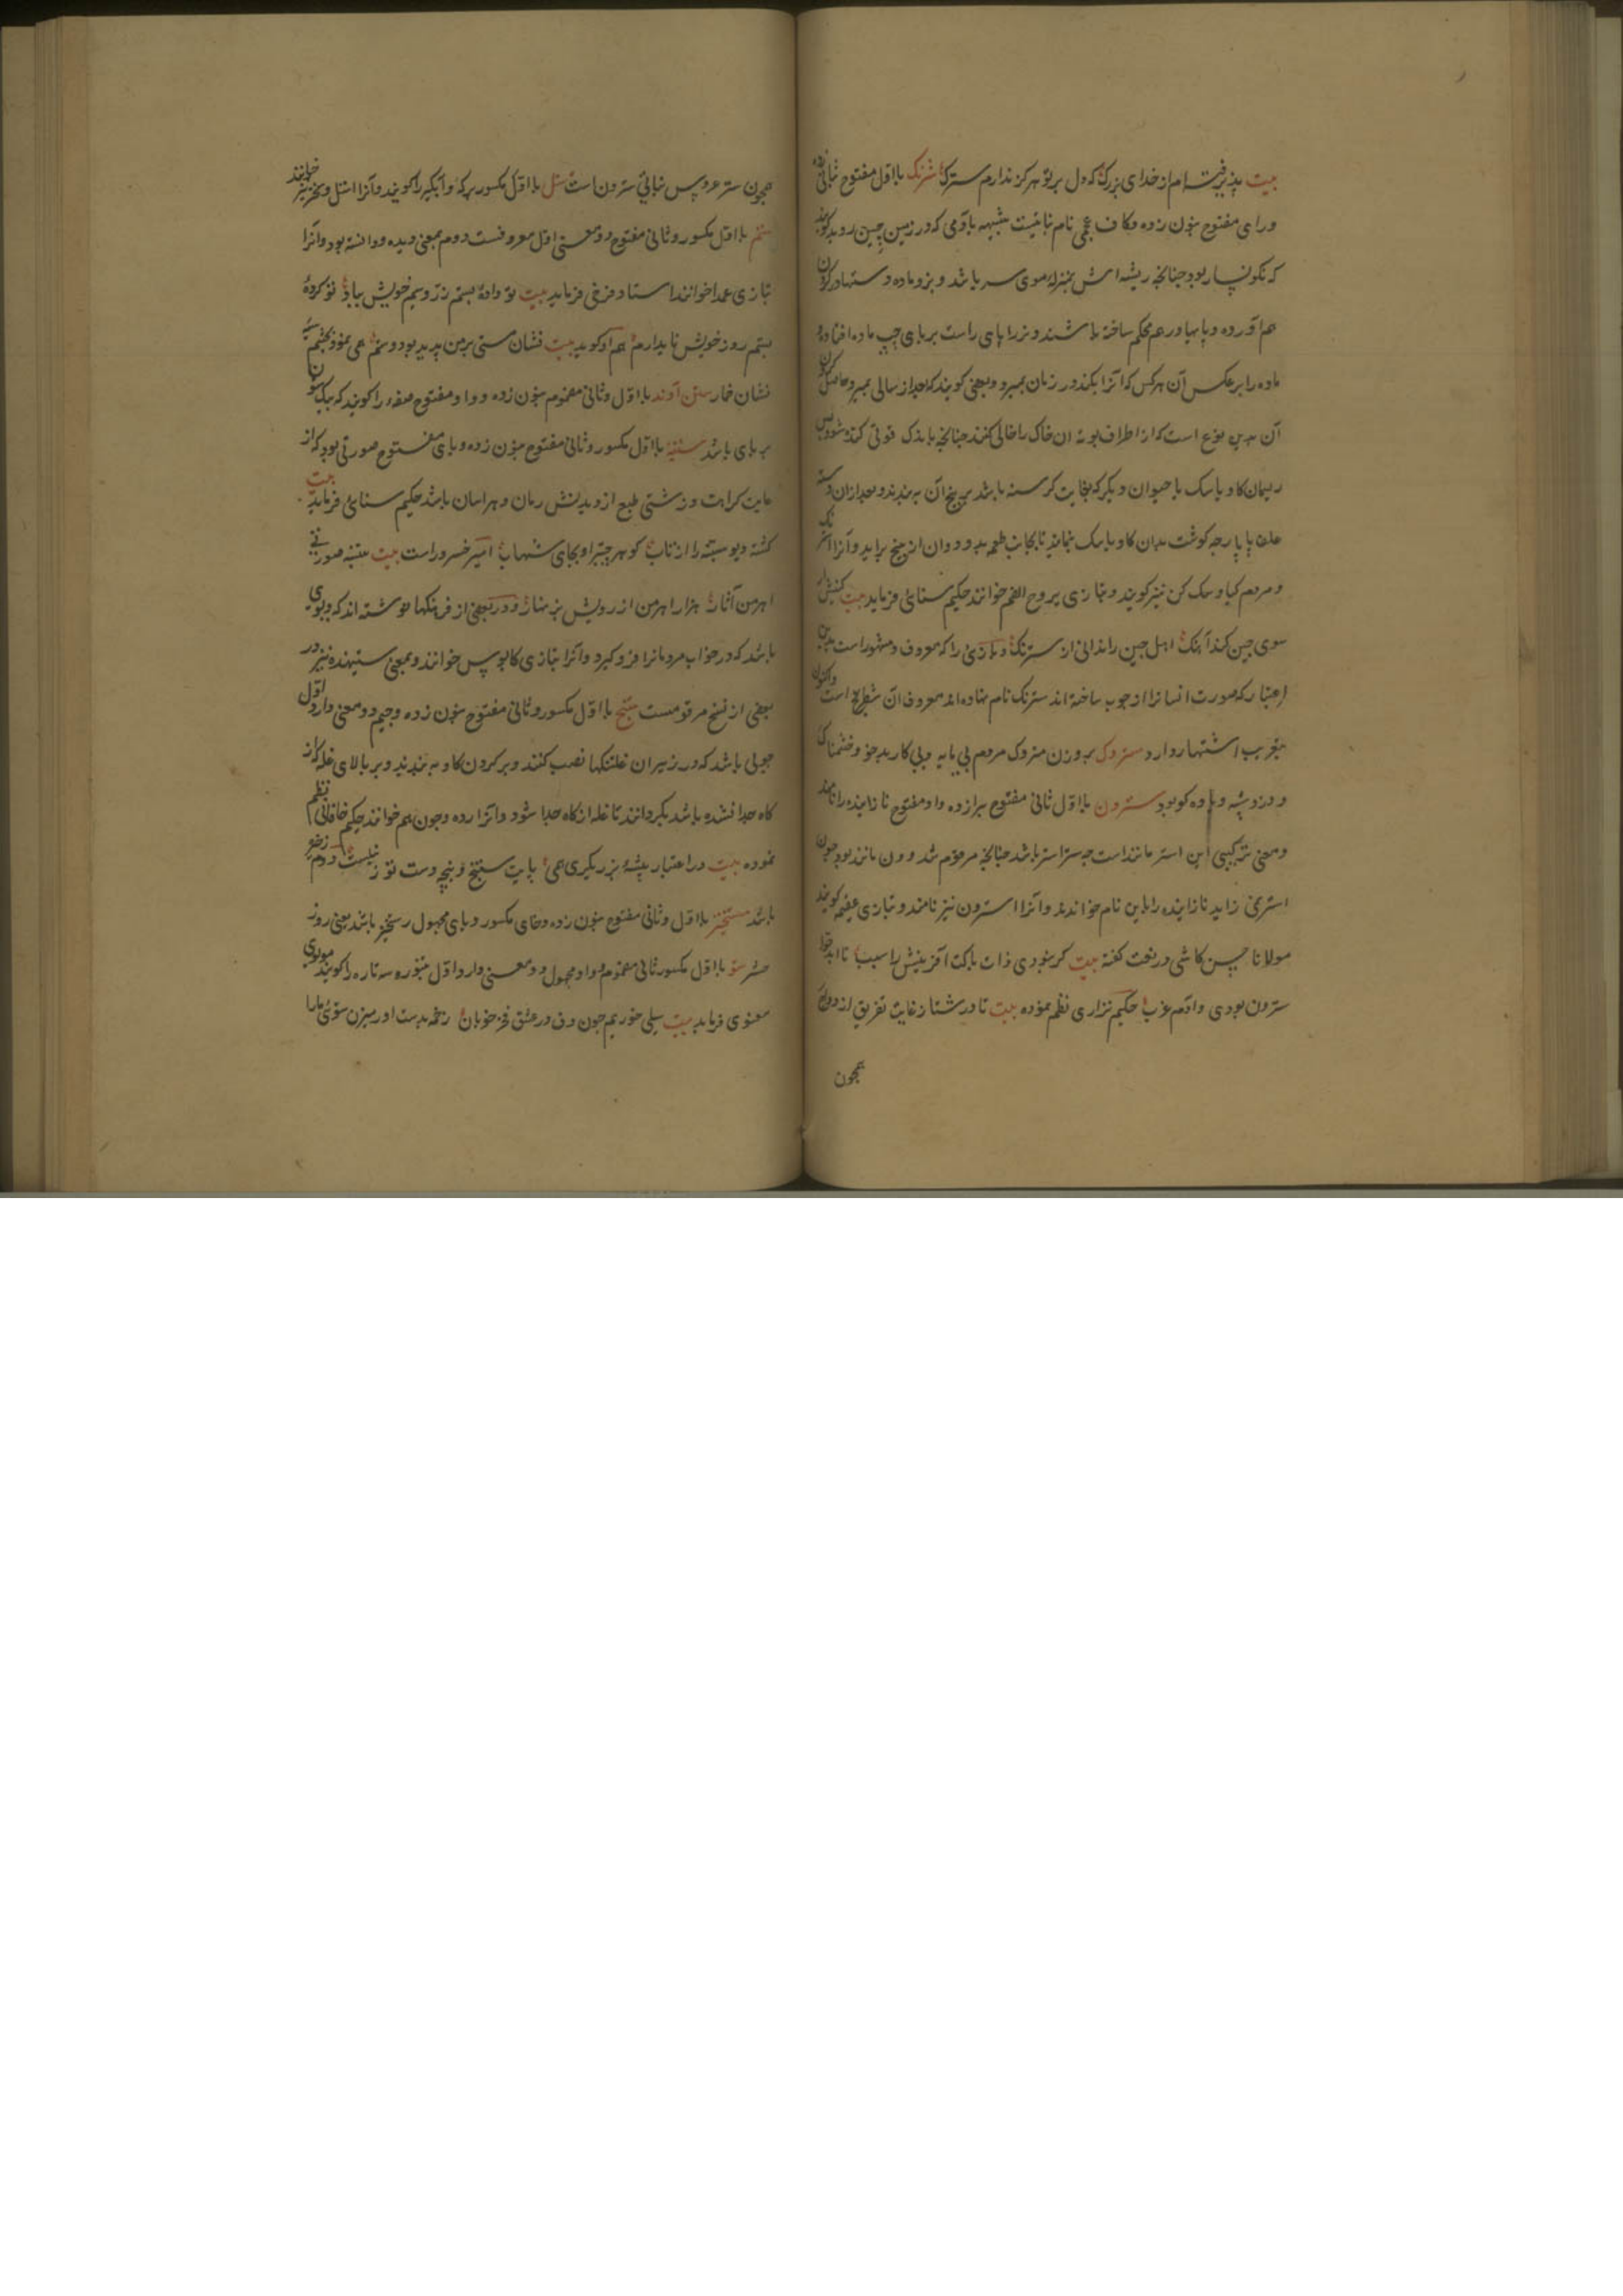 بیت پذیرفته‌ام از خدای بزرگ که دل بر تو هرگز ندارم سترک سترنک با اول مفتوح بثانی زده
ورای مفتوح بنون زده وکاف عجمی نام نباتیست شبیه بآدمی که در زمین چین روید کویند
که نکونسار بود چنانچه ریشه‌اش بمنزله موی سر باشد و نر و ماده دستها در کردن
هم آورده و پایها در هم محکم ساخته باشند و نر را پای راست بر پای چپ ماده افتاده
ماده را برعکس آن هرکس که آنرا بکند در زمان بمیرد و بعضی کویند که بعد از سالی بمیرد و حاصل کردن
آن بدین نوع است که از اطراف بوته آن خاک را خالی کنند چنانچه باندک قوتی کنده شود پس
ریسمان کاو یا سک یا حیوان دیکر که بغایت کرسنه باشد بر بیخ آن به‌بندند و بعد از آن دسته
علف یا پارچه کوشت بدان کاو یا سک نمایند تا بجانب طعمه بدود و آن از بیخ براید و آنرا استرنک
و مردم کیا و سک کن نیز کویند و بتازی یبروح الصنم خوانند حکیم سنائی فرماید بیت کنشش ار
سوی چین کند آهنک اهل چین را ندانی از سترنک و بازی را که معروف و مشهور است بدین
اعتبار که صورت انسانرا از چوب ساخته‌اند سترنک نام نهاده‌اند معروف آن شطرنج است واکنون
بتعریب اشتهار دارد ستروک بر وزن متروک مردم بی مایه و بی کار بدخو و خشمناک
و درزوشه و یاوه کو بود سترون با اول ثانی مفتوح برا زده واو مفتوح نازاینده را نامند
و معنی ترکیبی این استر مانند است چه ستر استر باشد چنانچه مرقوم شد و ون مانند بود چون
استر نمی زاید نازاینده را باین نام خوانده‌اند و آنرا استرون نیز نامند و بتازی عقیمه کویند
مولانا حسن کاشی در نعت کفته بیت کر نبودی ذات پاکت آفرینش را سبب تا ابد حوا
سترون بودی و آدم عزب حکیم نزاری نظم نموده بیت تا در شتا ز غایت تفریق از دواج
همچون
همچون ستر عروس نباتی سترون است ستل با اول مکسور برکه و آبکیر را کویند و آنرا استل و استخر نیز خوانند
ستم با اول مکسور و ثانی مفتوح دو معنی اول معروفست دوم بمعنی دیده و دانسته بود و آنرا
بتازی عمدا خوانند استاد فرخی فرماید بیت تو دادهٔ بستم زر و سیم خویش بباد تو کردهٔ
بستم روز خویش ناپدارم هم او کوید بیت نشان مستی بر من پدید بود و ستم همی نمود بچشم سیه
نشان خمار ستن آوند با اول و ثانی مضموم بنون زده و واو مفتوح صفه را کویند که بیک ستون
بر پای باشد ستنبه با اول مکسور و ثانی مفتوح بنون زده و بای مفتوح صورتی بود که از
غایت کراهت و زشتی طبع از دیدنش رمان و هراسان باشد حکیم سنائی فرماید بیت
کشته دیو ستنبه را از تاب کوهر چتر او بجای شهاب امیر خسرو راست بیت ستنبه صورتی
اهرمن آثار هزار اهرمن از رویش بزنهار و در بعضی از فرهنکها نوشته‌اند که دیوی
باشد که در خواب مردمانرا فرو کیرد و آنرا بتازی کابوس خوانند و بمعنی ستیهنده نیز در
بعضی از نسخ مرقومست ستنج با اول مکسور و ثانی مفتوح بنون زده و جیم دو معنی دارد اول
چوبی باشد که در زیر آن غلتکها نصب کنند و بر کردن کاو به بندند و بر بالای غله که از
کاه جدا نشده باشد بکردانند تا غله از کاه جدا شود و آنرا رده و چون هم خوانند حکیم خاقانی نظم
نموده بیت در اعتبار پیشهٔ برزیکری همی بایت ستنج و پنجه دست تو نیست دوم ذخیره
باشد ستنخیز با اول و ثانی مفتوح بنون زده و خای مکسور و یای مجهول رستخیز باشد یعنی روز
حشر ستو با اول مکسور ثانی مضموم و واو مجهول دو معنی دارد اول تنبوره سه تاره را کویند مولوی
معنوی فرماید بیت سیلی خوریم چون دف در عشق فخر خوبان زخمه بدست آور میزن ستوی مارا